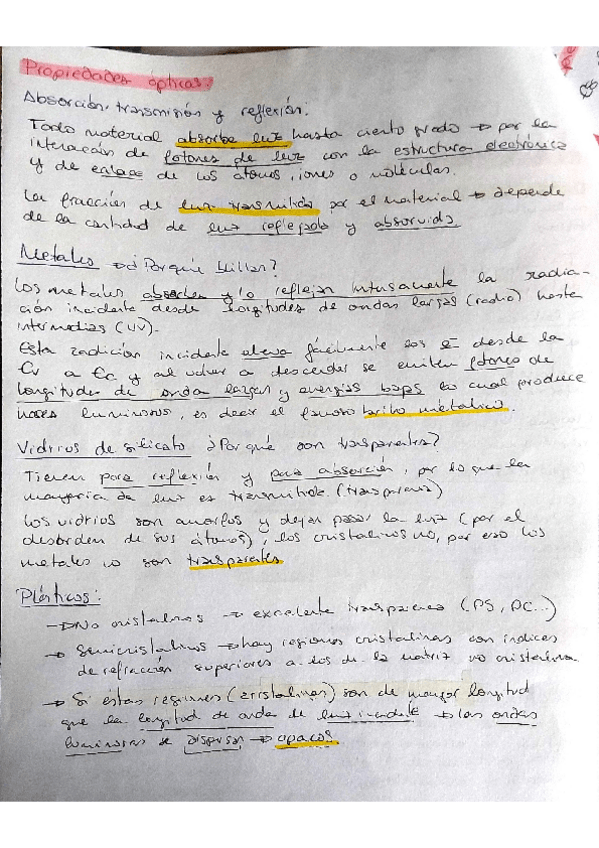 Propiedades ópticas:
Absorción, transmisión y reflexión:
Todo material absorbe luz hasta cierto grado → por la
interacción de fotones de luz con la estructura electrónica
y de enlace de los átomos, iones o moléculas.
La fracción de luz trasmitida por el material → depende
de la cantidad de luz reflejada y absorvida.
Metales → ¿Por qué brillan?
Los metales absorben y/o reflejan intensamente la radia-
ción incidente desde longitudes de ondas largas (radio) hasta
intermedias (UV).
Esta radición incidente eleva fácilmente los e- desde la
Ev a Ec y al volver a descender se emiten fotones de
longitudes de onda largas y energías bajas lo cual produce
haces luminosos, es decir el famoso brillo metálico.
Vidrios de silicato ¿Por qué son trasparentes?
Tienen poca reflexión y poca absorción, por lo que la
mayoría de luz es transmitida (trasparencia)
Los vidrios son amorfos y dejan pasar la luz (por el
desorden de sus átomos), los cristalinos no, por eso los
metales no son trasparentes.
Plásticos:
→ No cristalinos → excelente trasparencia (PS, PC...)
→ Semicristalinos → hay regiones cristalinas con índices
de refracción superiores a los de la matriz no cristalina.
→ Si estas regiones (cristalinas) son de mayor longitud
que la longitud de onda de luz incidente → las ondas
luminosas se dispersan → opacos.